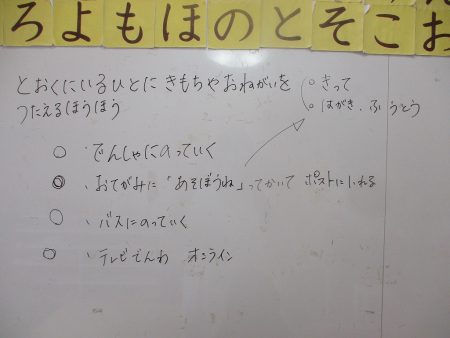 ろよもほのとそこお
とおくにいるひとに きもちや おねがいを
つたえるほうほう
・きって
・はがき、ふうとう
・でんしゃにのっていく
・おてがみに「あそぼうね」ってかいて ポストにいれる
・バスにのっていく
・テレビでんわ オンライン